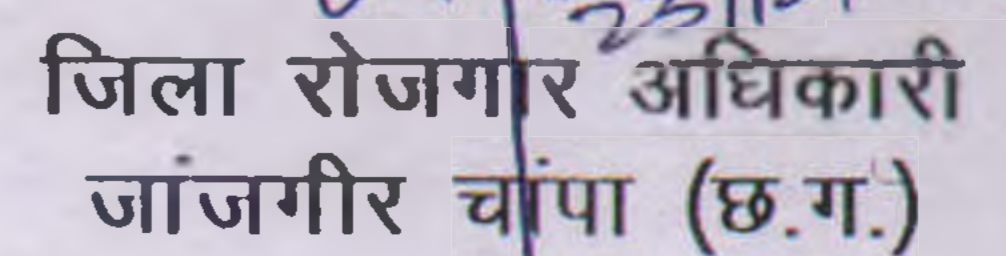 जिला रोजगार अधिकारी
जांजगीर चांपा (छ.ग.)